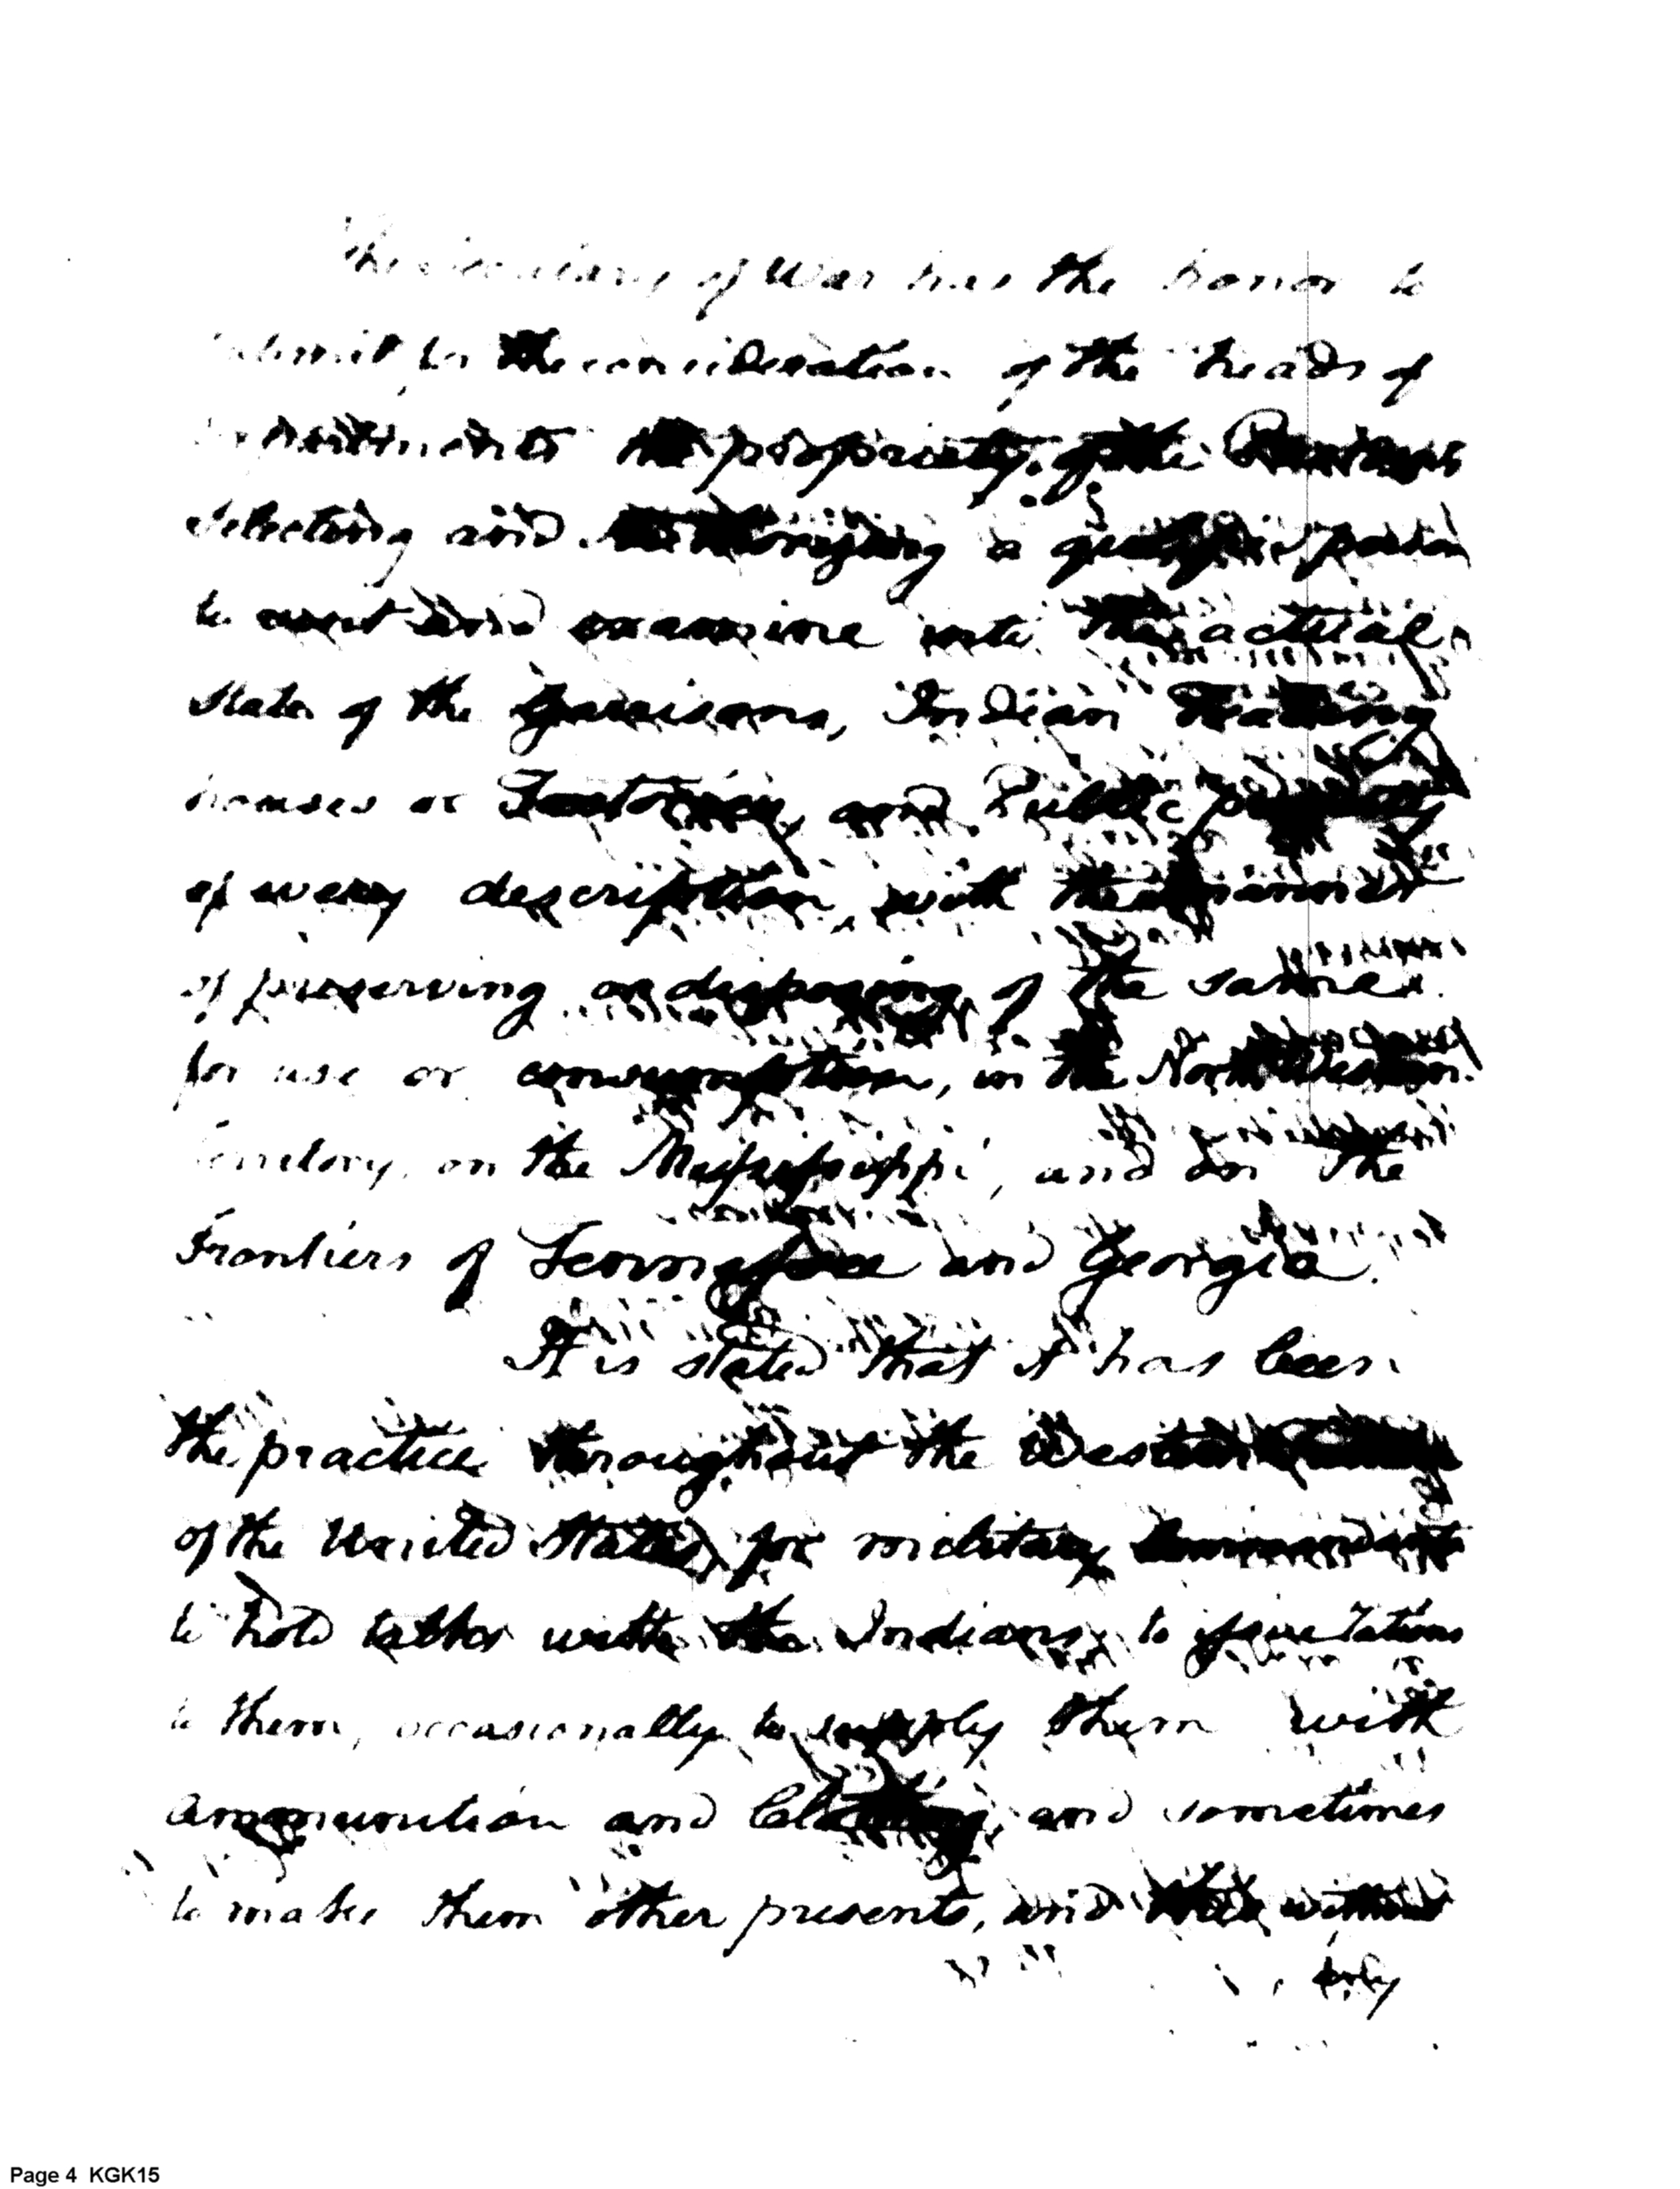 The Secretary of War has the honor to
submit for the consideration of the heads of
departments the propriety of the
selecting and a qualified person
to visit and examine into the actual
state of the Garrisons, Indian trading
houses or Factories, and Public property
of every description, with the manner
of preserving or disposing of the same
for use or consumption, in the North Western
Territory, on the Mississippi, and on the
Frontiers of Tennessee and Georgia.
It is stated that it has been
the practice throughout the Western
of the United States, for military
to hold talks with the Indians, to issue rations
to them, occasionally to supply them with
ammunition and Cloathing, and sometimes
to make them other presents, and this without
Page 4 KGK15